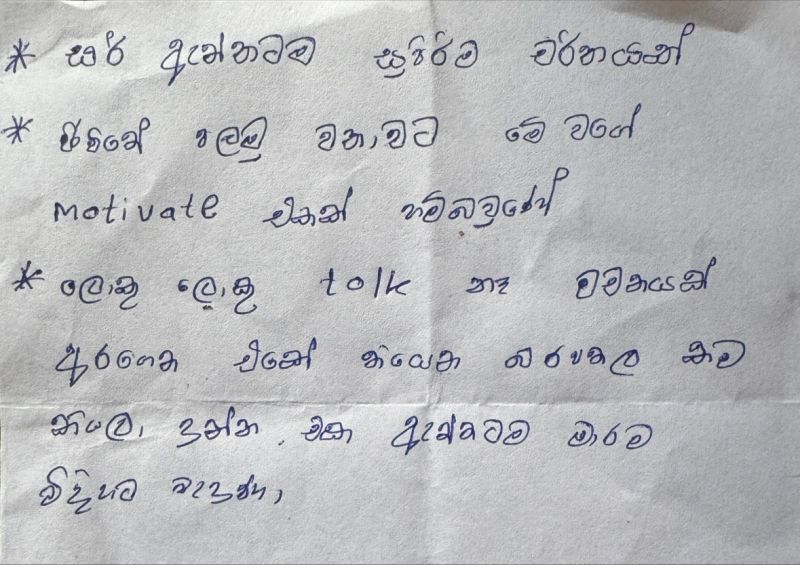 * සර් ඇත්තටම සුපිරිම චරිතයක්
* ජීවිතේ පලමු වතාවට මේ වගේ
motivate එකක් හම්බවුනේ
* ලොකු ලොකු talk නෑ වචනයක්
අරගෙන එකේ තියෙන බරපතල කම
කියලා දුන්න. එක ඇත්තටම මාරම
විදිහට වැදුණා,